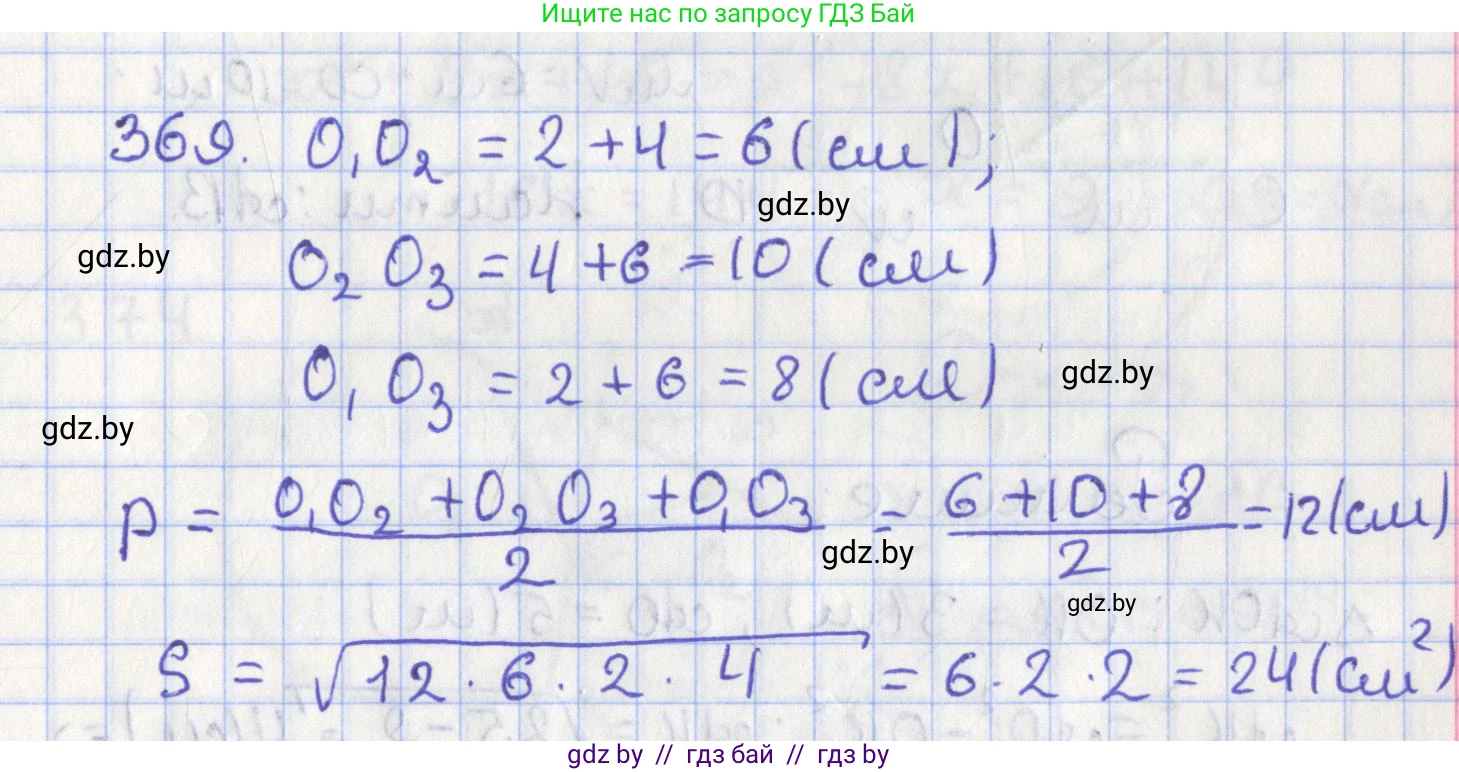 Ищите нас по запросу ГДЗ Бай
369. O₁O₂ = 2 + 4 = 6 (см);
gdz.by
gdz.by
O₂O₃ = 4 + 6 = 10 (см)
O₁O₃ = 2 + 6 = 8 (см)
gdz.by
gdz.by
p = (O₁O₂ + O₂O₃ + O₁O₃)/2 = (6 + 10 + 8)/2 = 12 (см)
gdz.by
gdz.by
S = √(12 · 6 · 2 · 4) = 6 · 2 · 2 = 24 (см²)
gdz by // гдз бай // гдз by